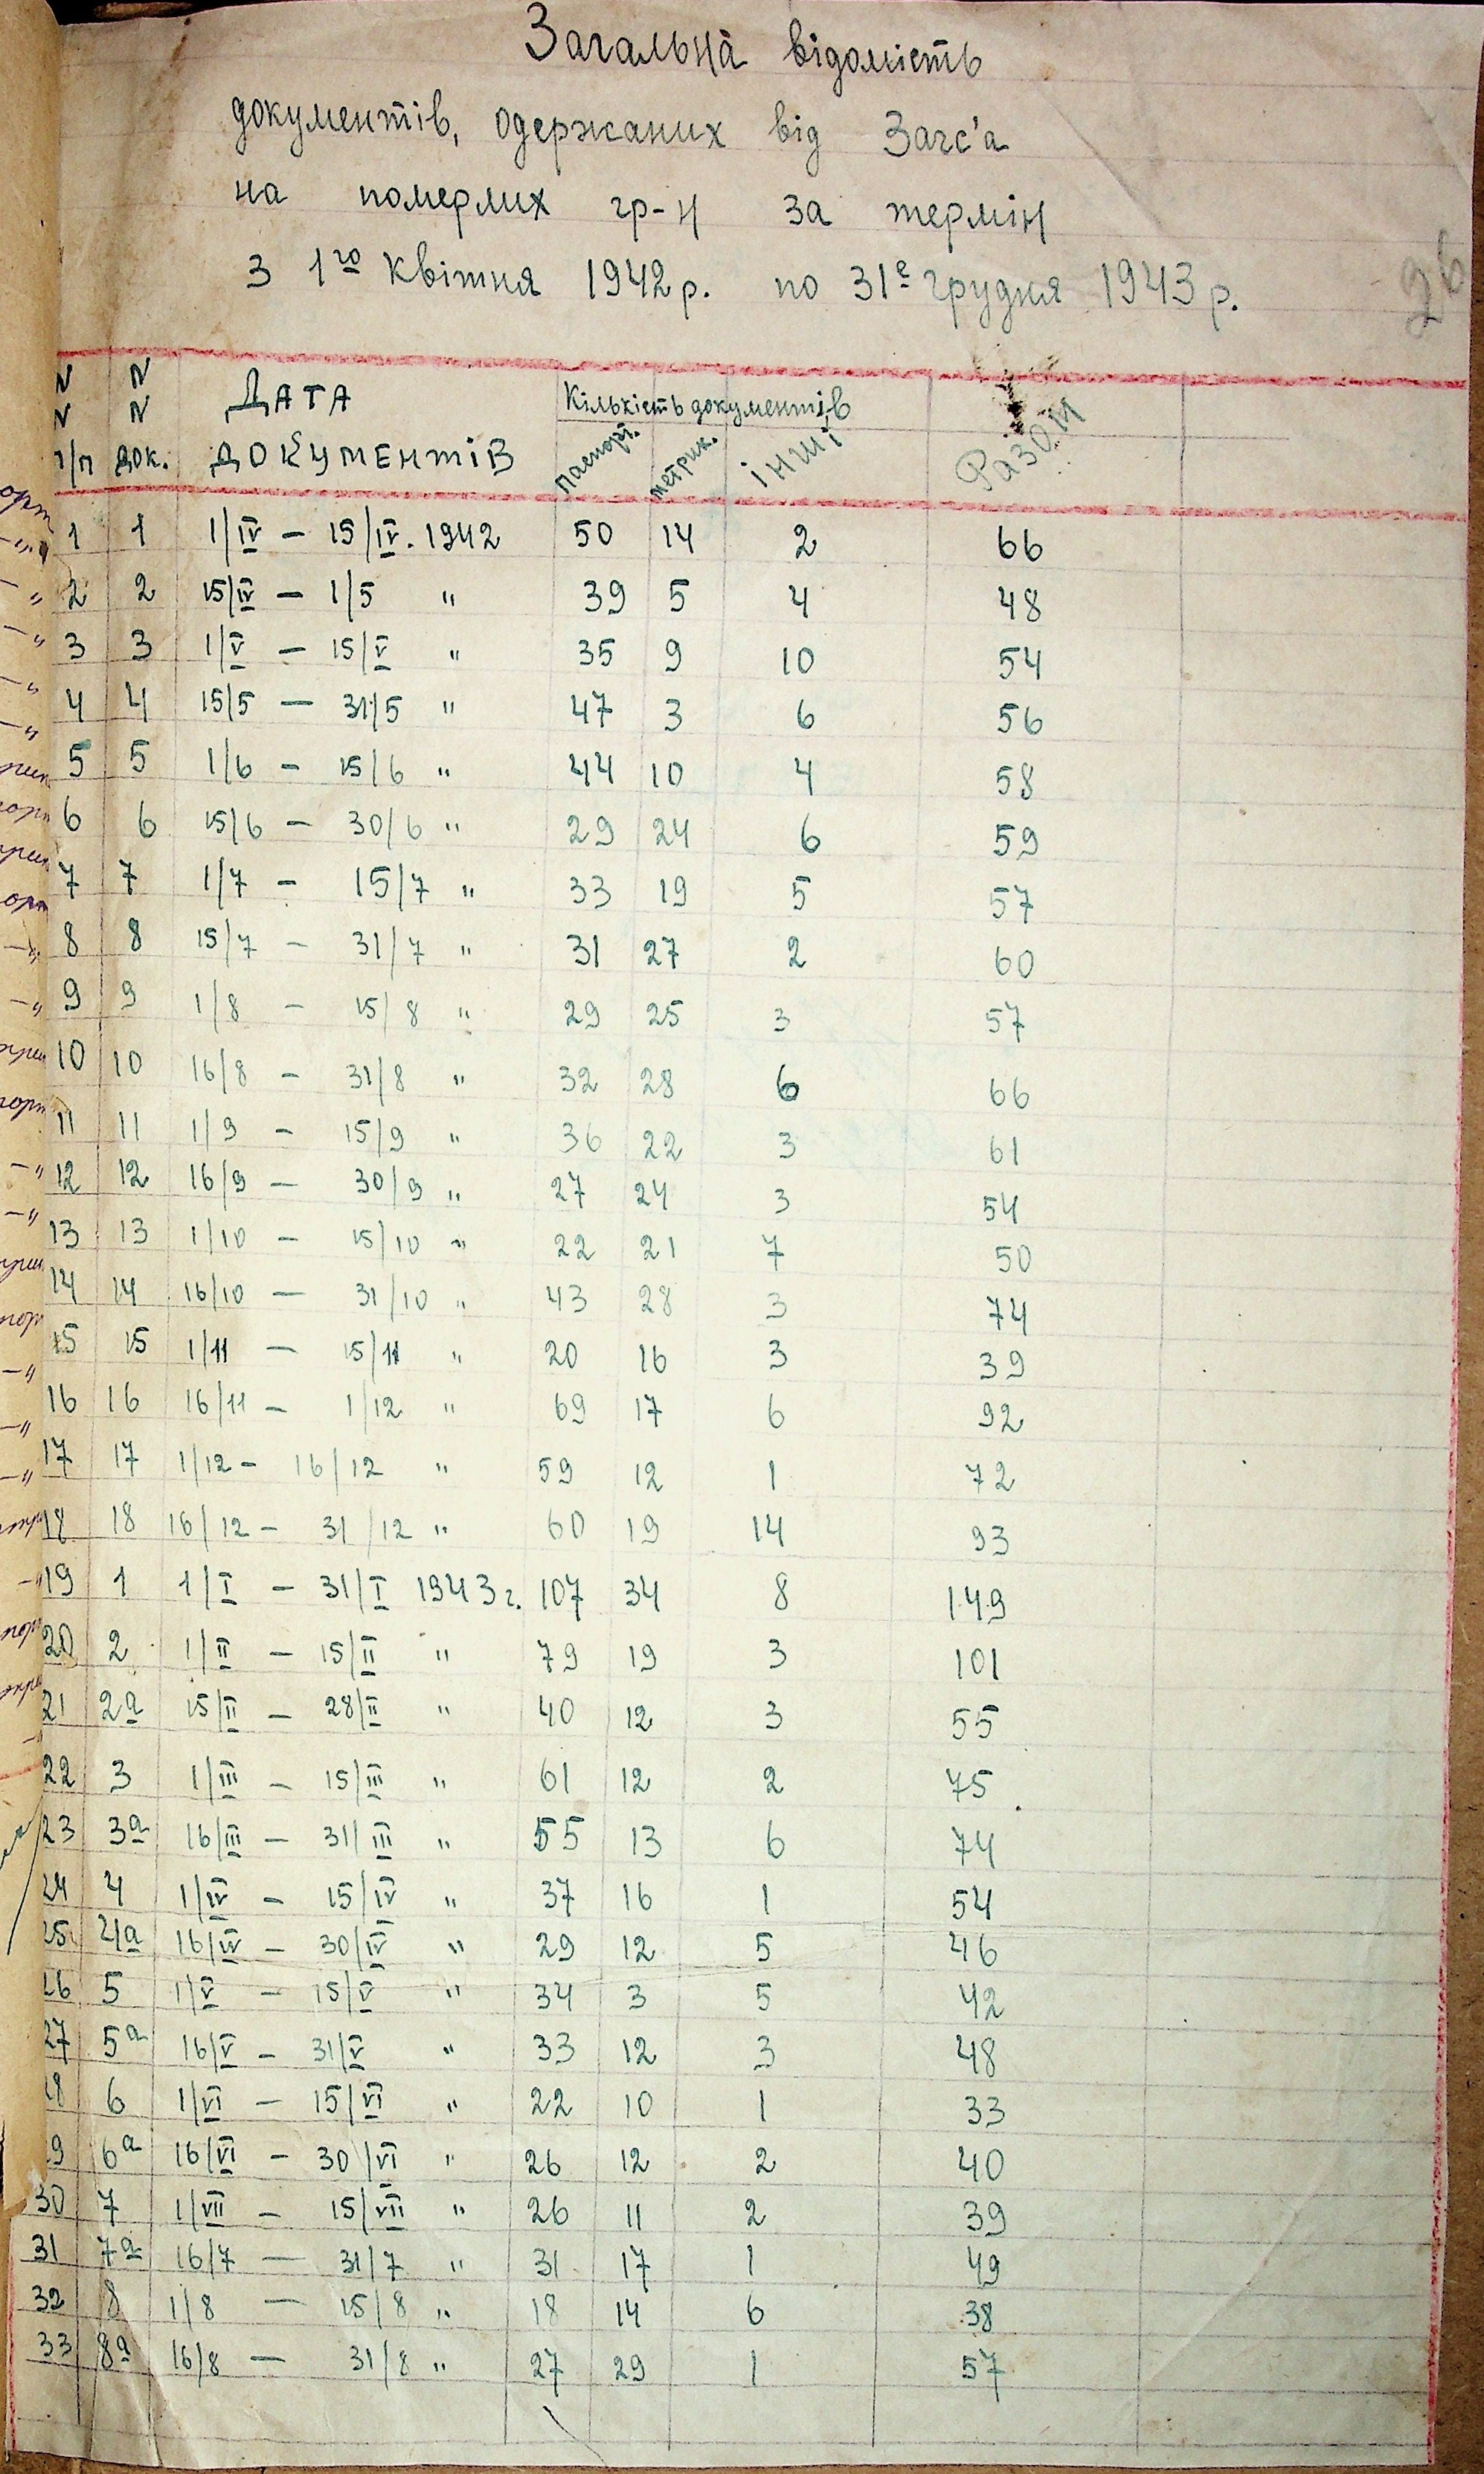 Загальна відомість
документів, одержаних від Загс'а
на померлих гр-н за термін
з 1го Квітня 1942р. по 31е грудня 1943р.
26
N N п/п N N док. Дата документів Кількість документів паспорт. метрик. інші Разом
1 1 1/IV – 15/IV. 1942 50 14 2 66
2 2 15/IV – 1/5 " 39 5 4 48
3 3 1/V – 15/V " 35 9 10 54
4 4 15/5 – 31/5 " 47 3 6 56
5 5 1/6 – 15/6 " 44 10 4 58
6 6 15/6 – 30/6 " 29 24 6 59
7 7 1/7 – 15/7 " 33 19 5 57
8 8 15/7 – 31/7 " 31 27 2 60
9 9 1/8 – 15/8 " 29 25 3 57
10 10 16/8 – 31/8 " 32 28 6 66
11 11 1/9 – 15/9 " 36 22 3 61
12 12 16/9 – 30/9 " 27 24 3 54
13 13 1/10 – 15/10 " 22 21 7 50
14 14 16/10 – 31/10 " 43 28 3 74
15 15 1/11 – 15/11 " 20 16 3 39
16 16 16/11 – 1/12 " 69 17 6 92
17 17 1/12 – 16/12 " 59 12 1 72
18 18 16/12 – 31/12 " 60 19 14 93
19 1 1/I – 31/I 1943г. 107 34 8 149
20 2 1/II – 15/II " 79 19 3 101
21 2а 15/II – 28/II " 40 12 3 55
22 3 1/III – 15/III " 61 12 2 75
23 3а 16/III – 31/III " 55 13 6 74
24 4 1/IV – 15/IV " 37 16 1 54
25 4а 16/IV – 30/IV " 29 12 5 46
26 5 1/V – 15/V " 34 3 5 42
27 5а 16/V – 31/V " 33 12 3 48
28 6 1/VI – 15/VI " 22 10 1 33
29 6а 16/VI – 30/VI " 26 12 2 40
30 7 1/VII – 15/VII " 26 11 2 39
31 7а 16/7 – 31/7 " 31 17 1 49
32 8 1/8 – 15/8 " 18 14 6 38
33 8а 16/8 – 31/8 " 27 29 1 57